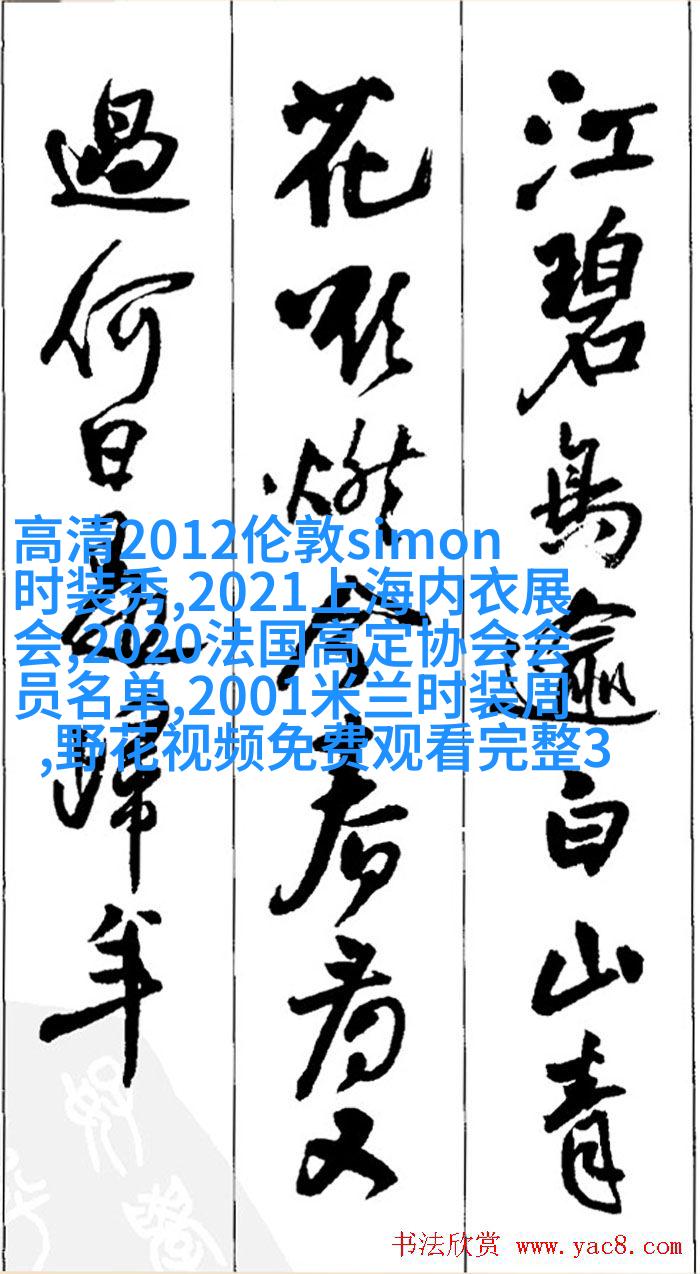 江碧鳥逾白山青
花欲燃今春看又
過何日是歸年
高清2012伦敦simon
时装秀,2021上海内衣展
会,2020法国高定协会会
员名单,2001米兰时装周
,野花视频免费观看完整3
书法欣赏 www.yac8.com